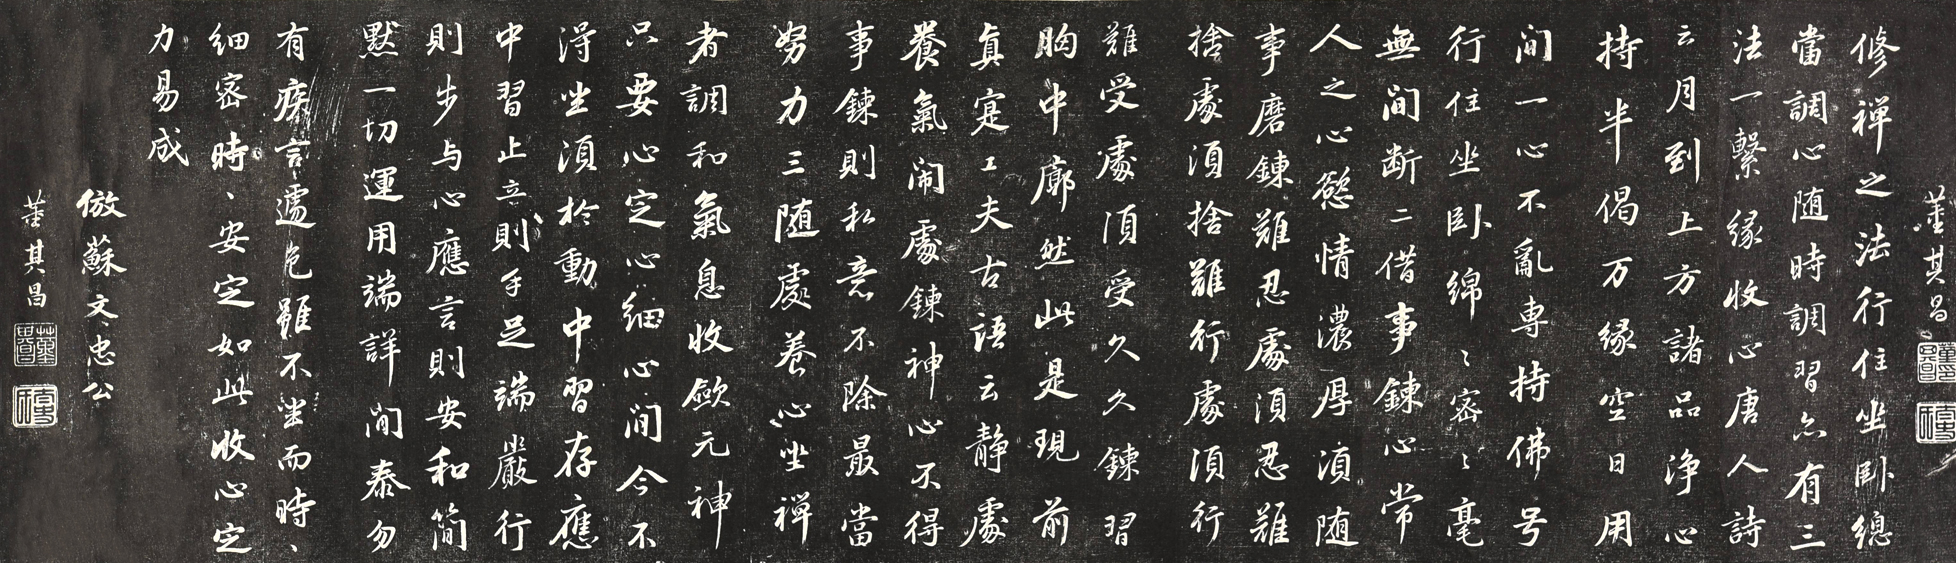 董其昌
修禅之法行住坐卧總
當調心随時調習亦有三
法一繫緣收心唐人詩
云月到上方諸品净心
持半偈万緣空日用
間一心不亂専持佛号
行住坐卧綿〻密〻毫
無间断二借事鍊心常
人之心慾情濃厚湏随
事磨鍊難忍處湏忍難
捨處湏捨難行處湏行
難受處湏受久久鍊習
胸中廓然此是現前
真寔工夫古语云静處
養氣闹處鍊神心不得
事鍊則私意不除最當
努力三随處养心坐禅
者調和氣息收歛元神
只要心定心细心间今不
得坐湏於動中習存應
中習止立則手足端嚴行
則步与心應言則安和简
默一切運用端詳闲泰勿
有疾言遽色雖不坐而時、
细密時、安定如此收心定
力易成
倣蘇文忠公
董其昌